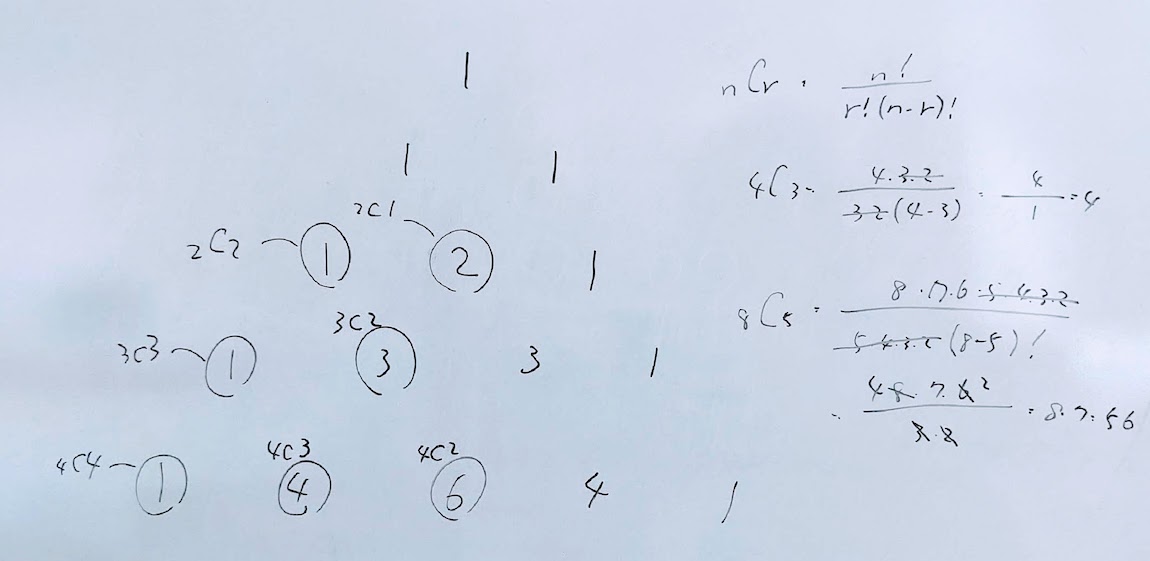 1
1 1
2C1
2C2 1 2 1
3C2
3C3 1 3 3 1
4C3 4C2
4C4 1 4 6 4 1
nCr = n! / r!(n-r)!
4C3 = 4.3.2 / 3 2 (4-3) = 4 / 1 = 4
8C5 = 8.7.6.5 4.3.2 / 5 4.3.2 (8-5)!
= 4 8. 7. 6 2 / 3.2 = 8.7.56